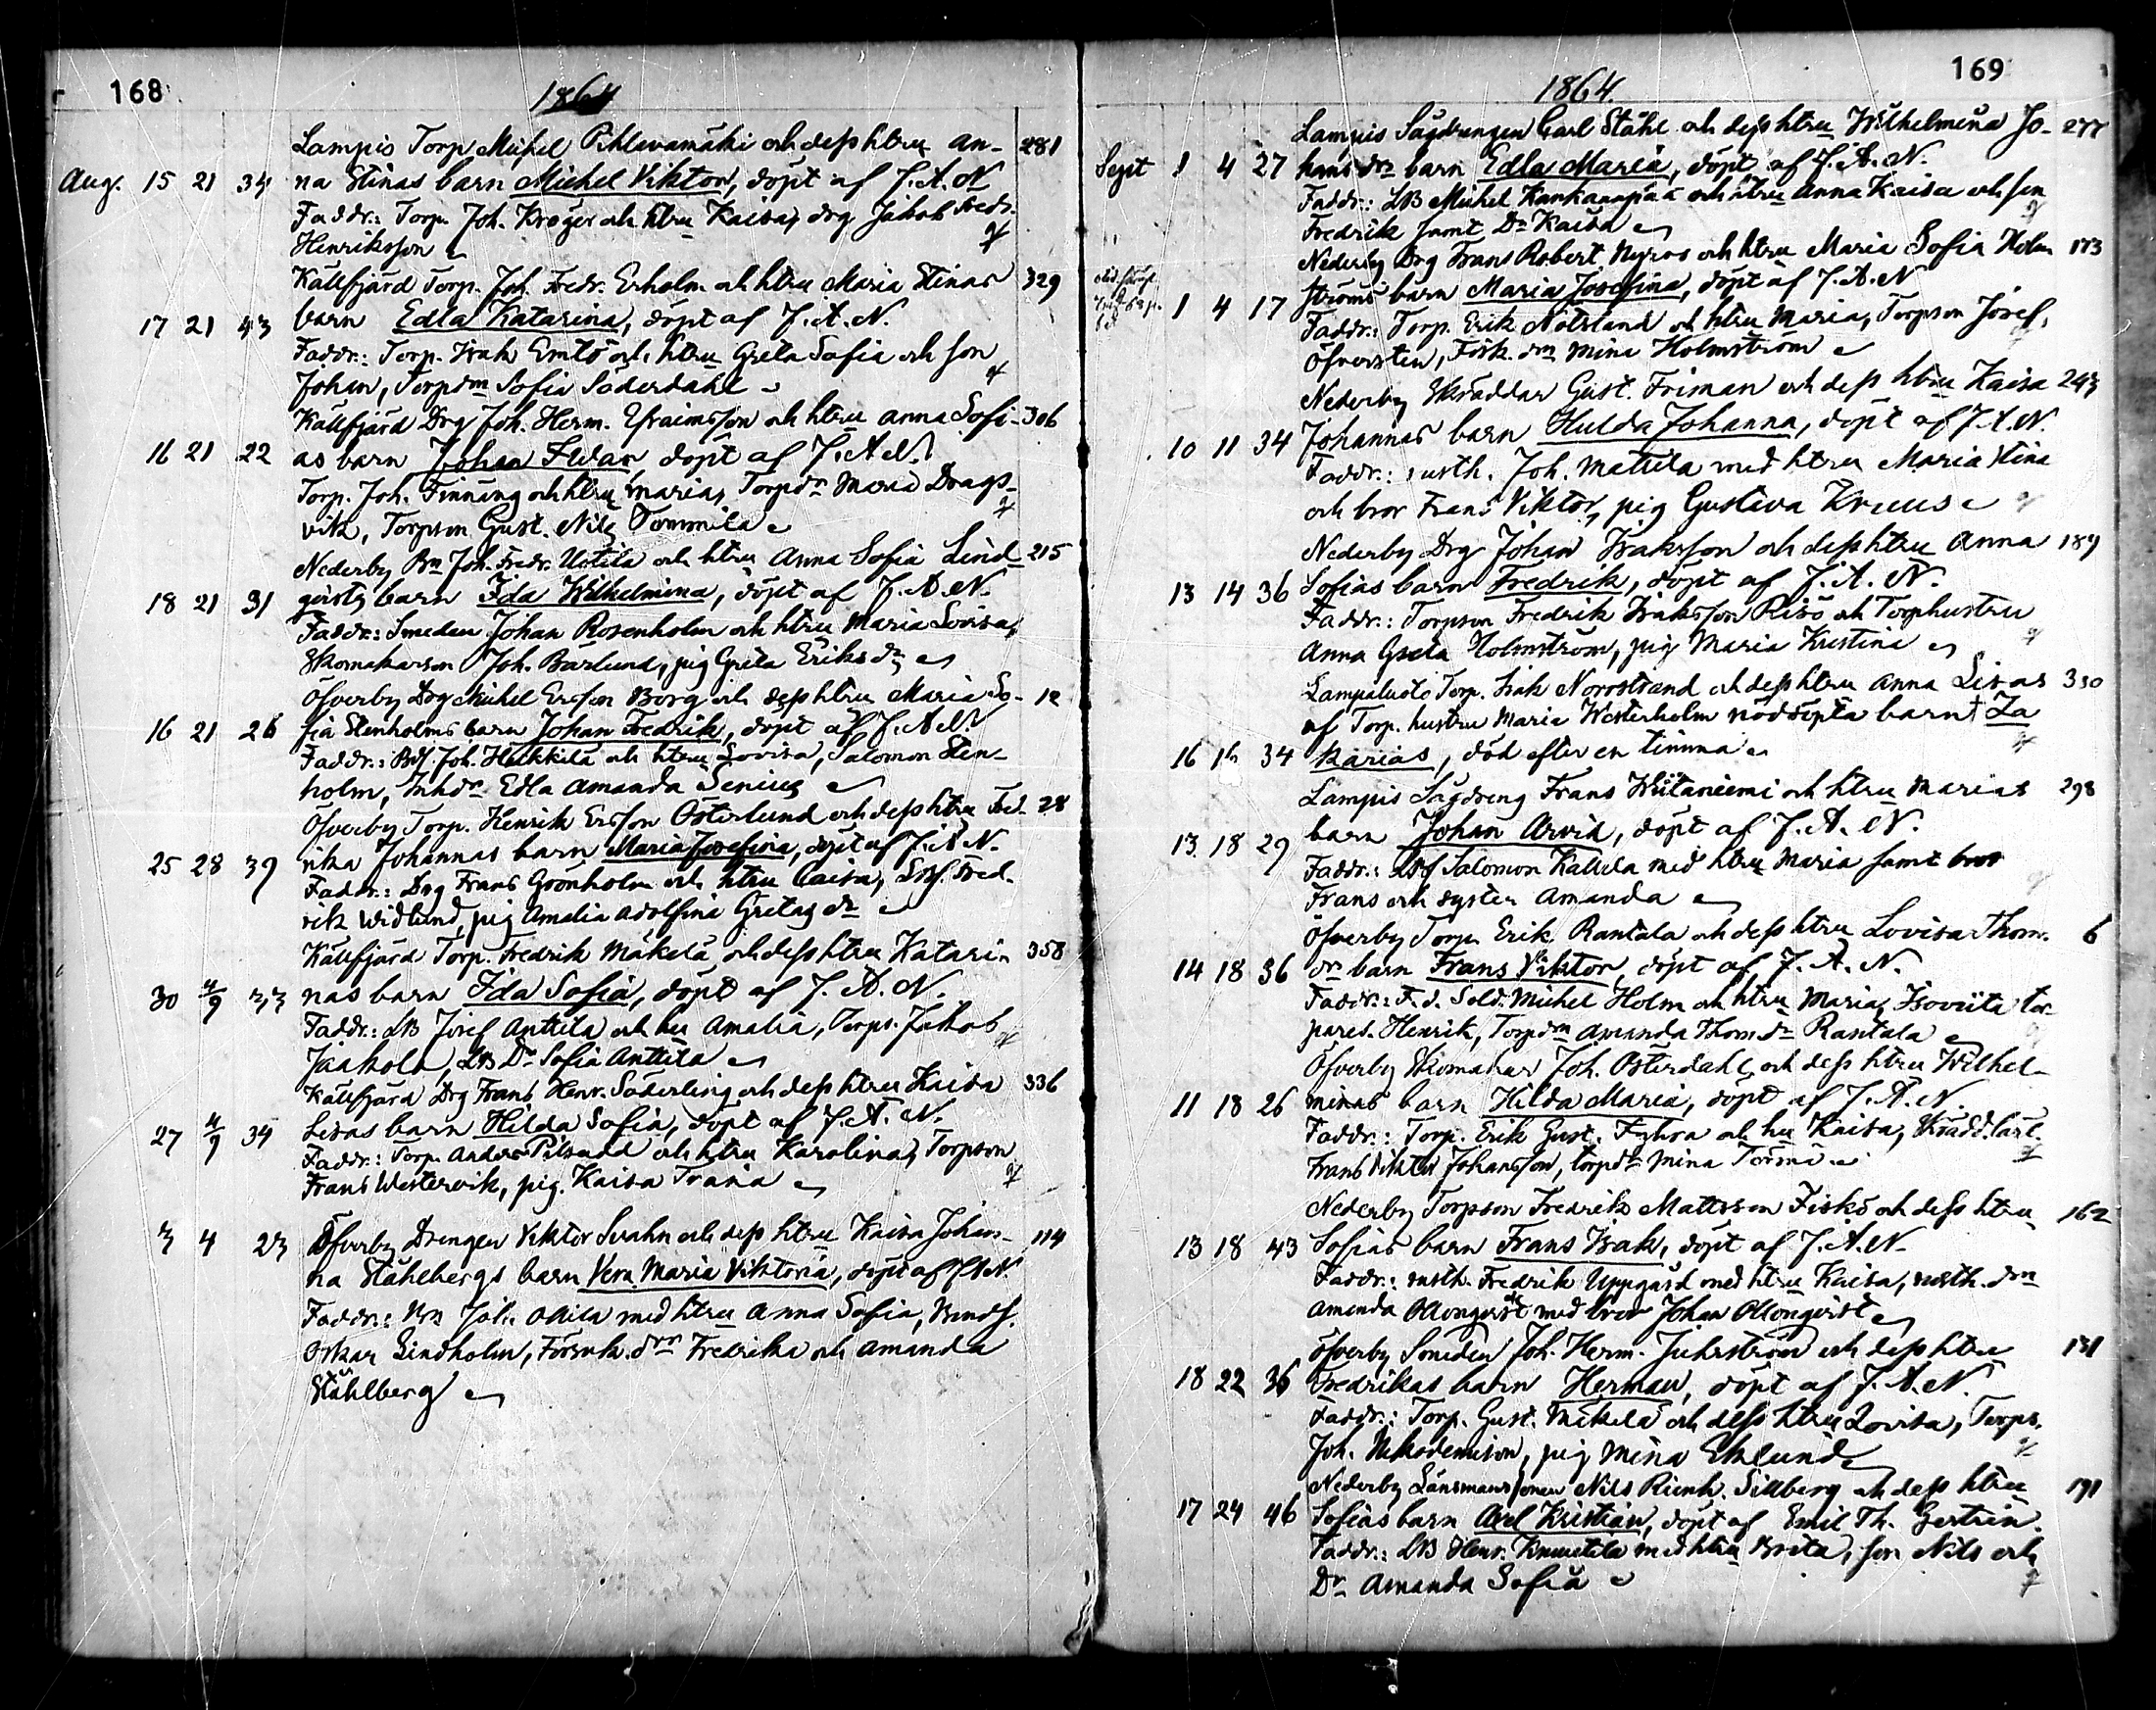 168
1864
Lampis Torp Michel Pihlavamäki och dess htru An- 281
Aug. 15 21 34 na Stinas barn Michel Viktor, döpt af J. A. N
Faddr.: Torp. Joh. Kröger och htru Kaisa, drg Jakob Fredr.
Henriksson
Källfjärd Torp. Joh. Fredr. Erholm och htru Maria Stinas 329
17 21 43 barn Edla Katarina, döpt af J. A. N.
Faddr.: Torp. Isak Emtö och htru Greta Sofia och son
Johan, Torpdm Sofia Söderdahl
Källfjärd Drg Joh. Herm. Efraimsson och htru Anna Sofi- 306
16 21 22 as barn Johan Edvar, döpt af J. A. N.
Torp. Joh. Finnäng och htru Maria, Torpdr Maria Drags-
vik, Torpson Gust. Nils Tommila
Nederby Bn Joh. Fredr. Uotila och htru Anna Sofia Lind- 215
18 21 31 qvists barn Ida Wilhelmina, döpt af J. A. N.
Faddr.: Smeden Johan Rosenholm och htru Maria Lovisa,
Skomakarson Joh. Bärlund, pig Greta Eriksdr
Öfverby Drg Michel Ersson Borg och dess htru Maria So- 12
16 21 26 fia Stenholms barn Johan Fredrik, döpt af J. A. N.
Faddr.: Bdf. Joh. Heikkilä och htru Lovisa, Salomon Sten-
holm, Inhdr Edla Amanda Senius
Öfverby Torp. Henrik Ersson Österlund och dess htru Fred- 28
25 28 39 rika Johannas barn Maria Josefina, döpt af J. A. N.
Faddr.: Drg Frans Grönholm och htru Caisa, Fred-
rik Widlund, pig Amalia Adolfina Gretas dr
Källfjärd Torp. Fredrik Mäkelä och dess htru Katari- 358
30 4/9 33 nas barn Ida Sofia, döpt af J. A. N.
Faddr.: LB Josef Anttila och hu Amalia, Torps. Jakob
Jaakola, LB Dr Sofia Anttila
Källfjärd Drg Frans Henr. Söderling och dess htru Kaisa 336
27 4/9 34 Lisas barn Hilda Sofia, döpt af J. A. N.
Faddr.: Torp. Anders Pilsudd och htru Karolina, Torpson
Frans Westervik, pig. Kaisa Trana
3 4 23 Öfverby Drengen Viktor Svahn och dess htru Kaisa Johan- 114
na Ståhlbergs barn Vera Maria Viktoria, döpt af J. A. N.
Faddr.: Bn Joh. Ollila med htru Anna Sofia,
Oskar Lindholm, dr Fredrika och Amanda
Ståhlberg
169
1864.
Lampis Sågdrengen Carl Ståhl och dess htru Wilhelmina Jo- 277
Sept 1 4 27 hans dr barn Edla Maria, döpt af J. A. N.
Faddr.: LB Michel Kankaanpää och htru Anna Kaisa och son
Fredrik samt Dr Kaisa
Nederby Drg Frans Robert Nyroos och htru Maria Sofia Holm 173
1 4 17 ströms barn Maria Josefina, döpt af J. A. N
Faddr.: Torp. Erik Nötstrand och htru Maria, Torpson Josef
Öfversten, Fisk. dm Mina Holmström
Nederby Skräddar Gust. Friman och dess htru Kaisa 243
10 11 34 Johannas barn Hulda Johanna, döpt af J. A. N.
Faddr.: rusth. Joh. Mattila med htru Maria Stina
och bror Frans Viktor, pig Gustava Kruus
Nederby Drg Johan Isaksson och dess htru Anna 189
13 14 36 Sofias barn Fredrik, döpt af J. A. N.
Faddr.: Torpson Fredrik Isaksson Risö och Torphustru
Anna Greta Holmström, pig Maria Kristina
Lampaluoto Torp. Isak Norrstrand och dess htru Anna Lisas 330
af Torp. hustru Maria Westerholm nöddöpta barn † Za
16 16 34 karias, död efter en timma
Lampis Sågdreng Frans Wiitaniemi och htru Marias 298
13 18 29 barn Johan Arvid, döpt af J. A. N.
Faddr.: Bdf Salomon Kallela med htru Maria samt bror
Frans och syster Amanda
Öfverby Torp. Erik Rantala och dess htru Lovisa Thom. 6
14 18 36 dr barn Frans Viktor, döpt af J. A. N.
Faddr.: F. d. Sold. Michel Holm och htru Maria, Isoviita tor-
pared. Henrik, Torpdm Amanda Thomdr Rantala
Öfverby Skomakar Joh. Österdahl och dess htru Wilhel-
11 18 26 minas barn Hilda Maria, döpt af J. A. N.
Faddr.: Torp. Erik Gust. och hu Kaisa, Skrädd. lärl.
Frans Viktor Johansson, torpdtr Mina Torma
Nederby Torpson Fredrik Mattsson Fiskö och dess htru 162
13 18 43 Sofias barn Frans Isak, döpt af J. A. N.
Faddr.: rusth. Fredrik Uppgård med htru Kaisa, rusth. dm
Amanda Ollonqvist med bror Johan Ollonqvist
Öfverby Smeden Joh. Herm. Juhrström och dess htru 131
18 22 36 Fredrikas barn Herman, döpt af J. A. N.
Faddr.: Torp. Gust. Mäkelä och dess htru Lovisa, Torps.
Joh. Nikodemison, pig Mina Eklund
Nederby Länsmanssonen Nils Rienh. Sillberg och dess htru 191
17 24 46 Sofias barn Axel Kristian, döpt af Emil Th. Gestrin.
Faddr.: LB Henr. Knuutila med htru Brita, son Nils och
Dr Amanda Sofia